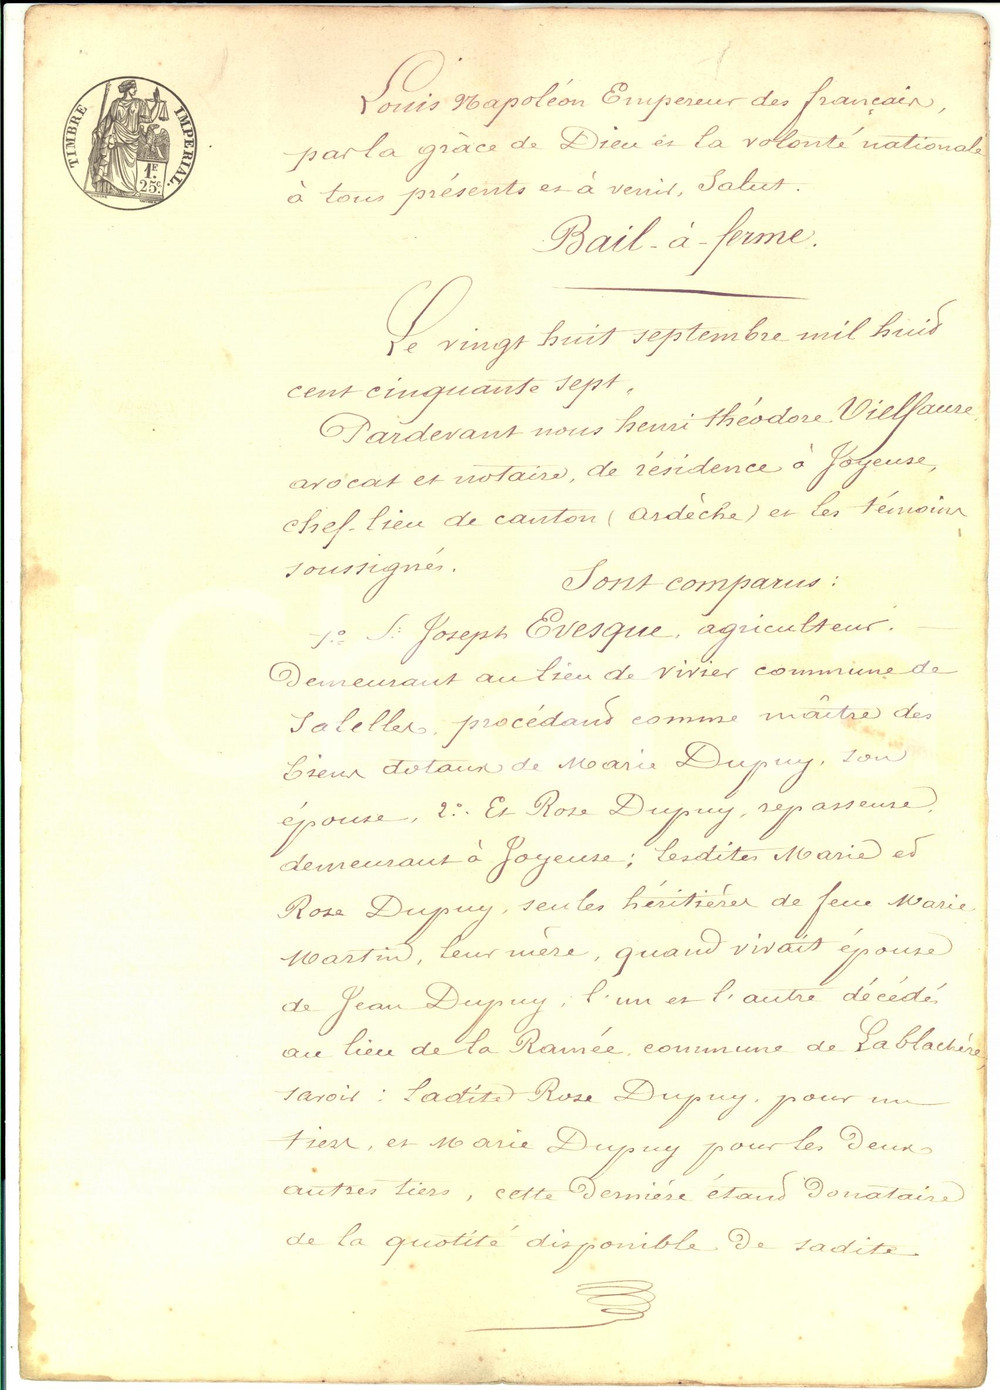 TIMBRE IMPERIAL.
1F.
25c.
Louis Napoléon Empereur des français,
par la grâce de Dieu et la volonté nationale
à tous présents et à venir, Salut.
Bail-à-ferme.
Le vingt huit septembre mil huit
cent cinquante sept.
Pardevant nous henri théodore Vielfaure
avocat et notaire, de résidence à Joyeuse,
chef-lieu de canton (ardèche) et les témoins
soussignés.
Sont comparus:
1º Sr Joseph Evesque, agriculteur.
Demeurant au lieu de vivier commune de
Salelles, procédant comme maître des
biens dotaux de Marie Dupuy, son
épouse, 2º. Et Rose Dupuy, repasseuse,
demeurant à Joyeuse; lesdites Marie et
Rose Dupuy, seules héritières de feue Marie
Martin, leur mère, quand vivait épouse
de Jean Dupuy, l'un et l'autre décédés
au lieu de la Ramée, commune de Lablachère,
savoir: ladite Rose Dupuy, pour un
tiers, et Marie Dupuy pour les deux
autres tiers, cette dernière étant Donataire
de la quotité disponible de sadite